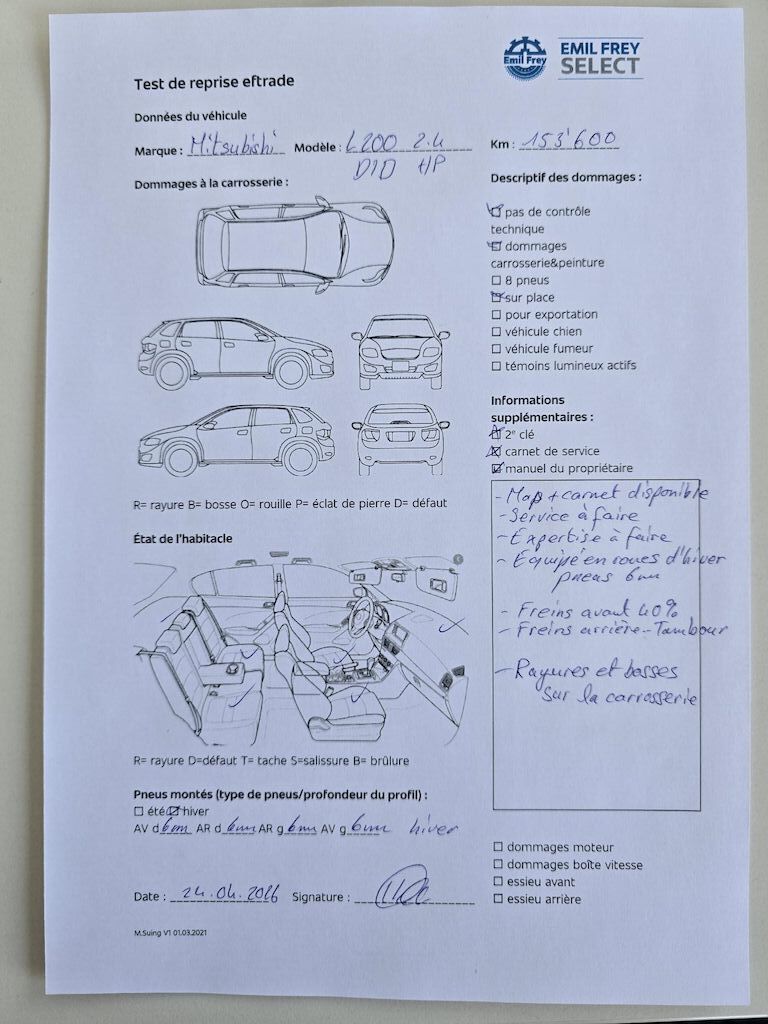 Emil Frey
EMIL FREY
SELECT
Test de reprise eftrade
Données du véhicule
Marque : Mitsubishi Modèle : L200 2.4 Km : 153'600
DID HP
Dommages à la carrosserie :
Descriptif des dommages :
pas de contrôle
technique
dommages
carrosserie&peinture
8 pneus
sur place
pour exportation
véhicule chien
véhicule fumeur
témoins lumineux actifs
Informations
supplémentaires :
2e clé
carnet de service
manuel du propriétaire
R= rayure B= bosse O= rouille P= éclat de pierre D= défaut
État de l'habitacle
- Map + carnet disponible
- Service à faire
- Expertise à faire
- Equipé en roues d'hiver
pneus 6mm
- Freins avant 40%
- Freins arrière - Tambour
- Rayures et bosses
sur la carrosserie
R= rayure D=défaut T= tache S=salissure B= brûlure
Pneus montés (type de pneus/profondeur du profil) :
été hiver
AV d 6mm AR d 6mm AR g 6mm AV g 6mm hiver
dommages moteur
dommages boîte vitesse
essieu avant
essieu arrière
Date : 24.04.2026 Signature :
M.Suing V1 01.03.2021